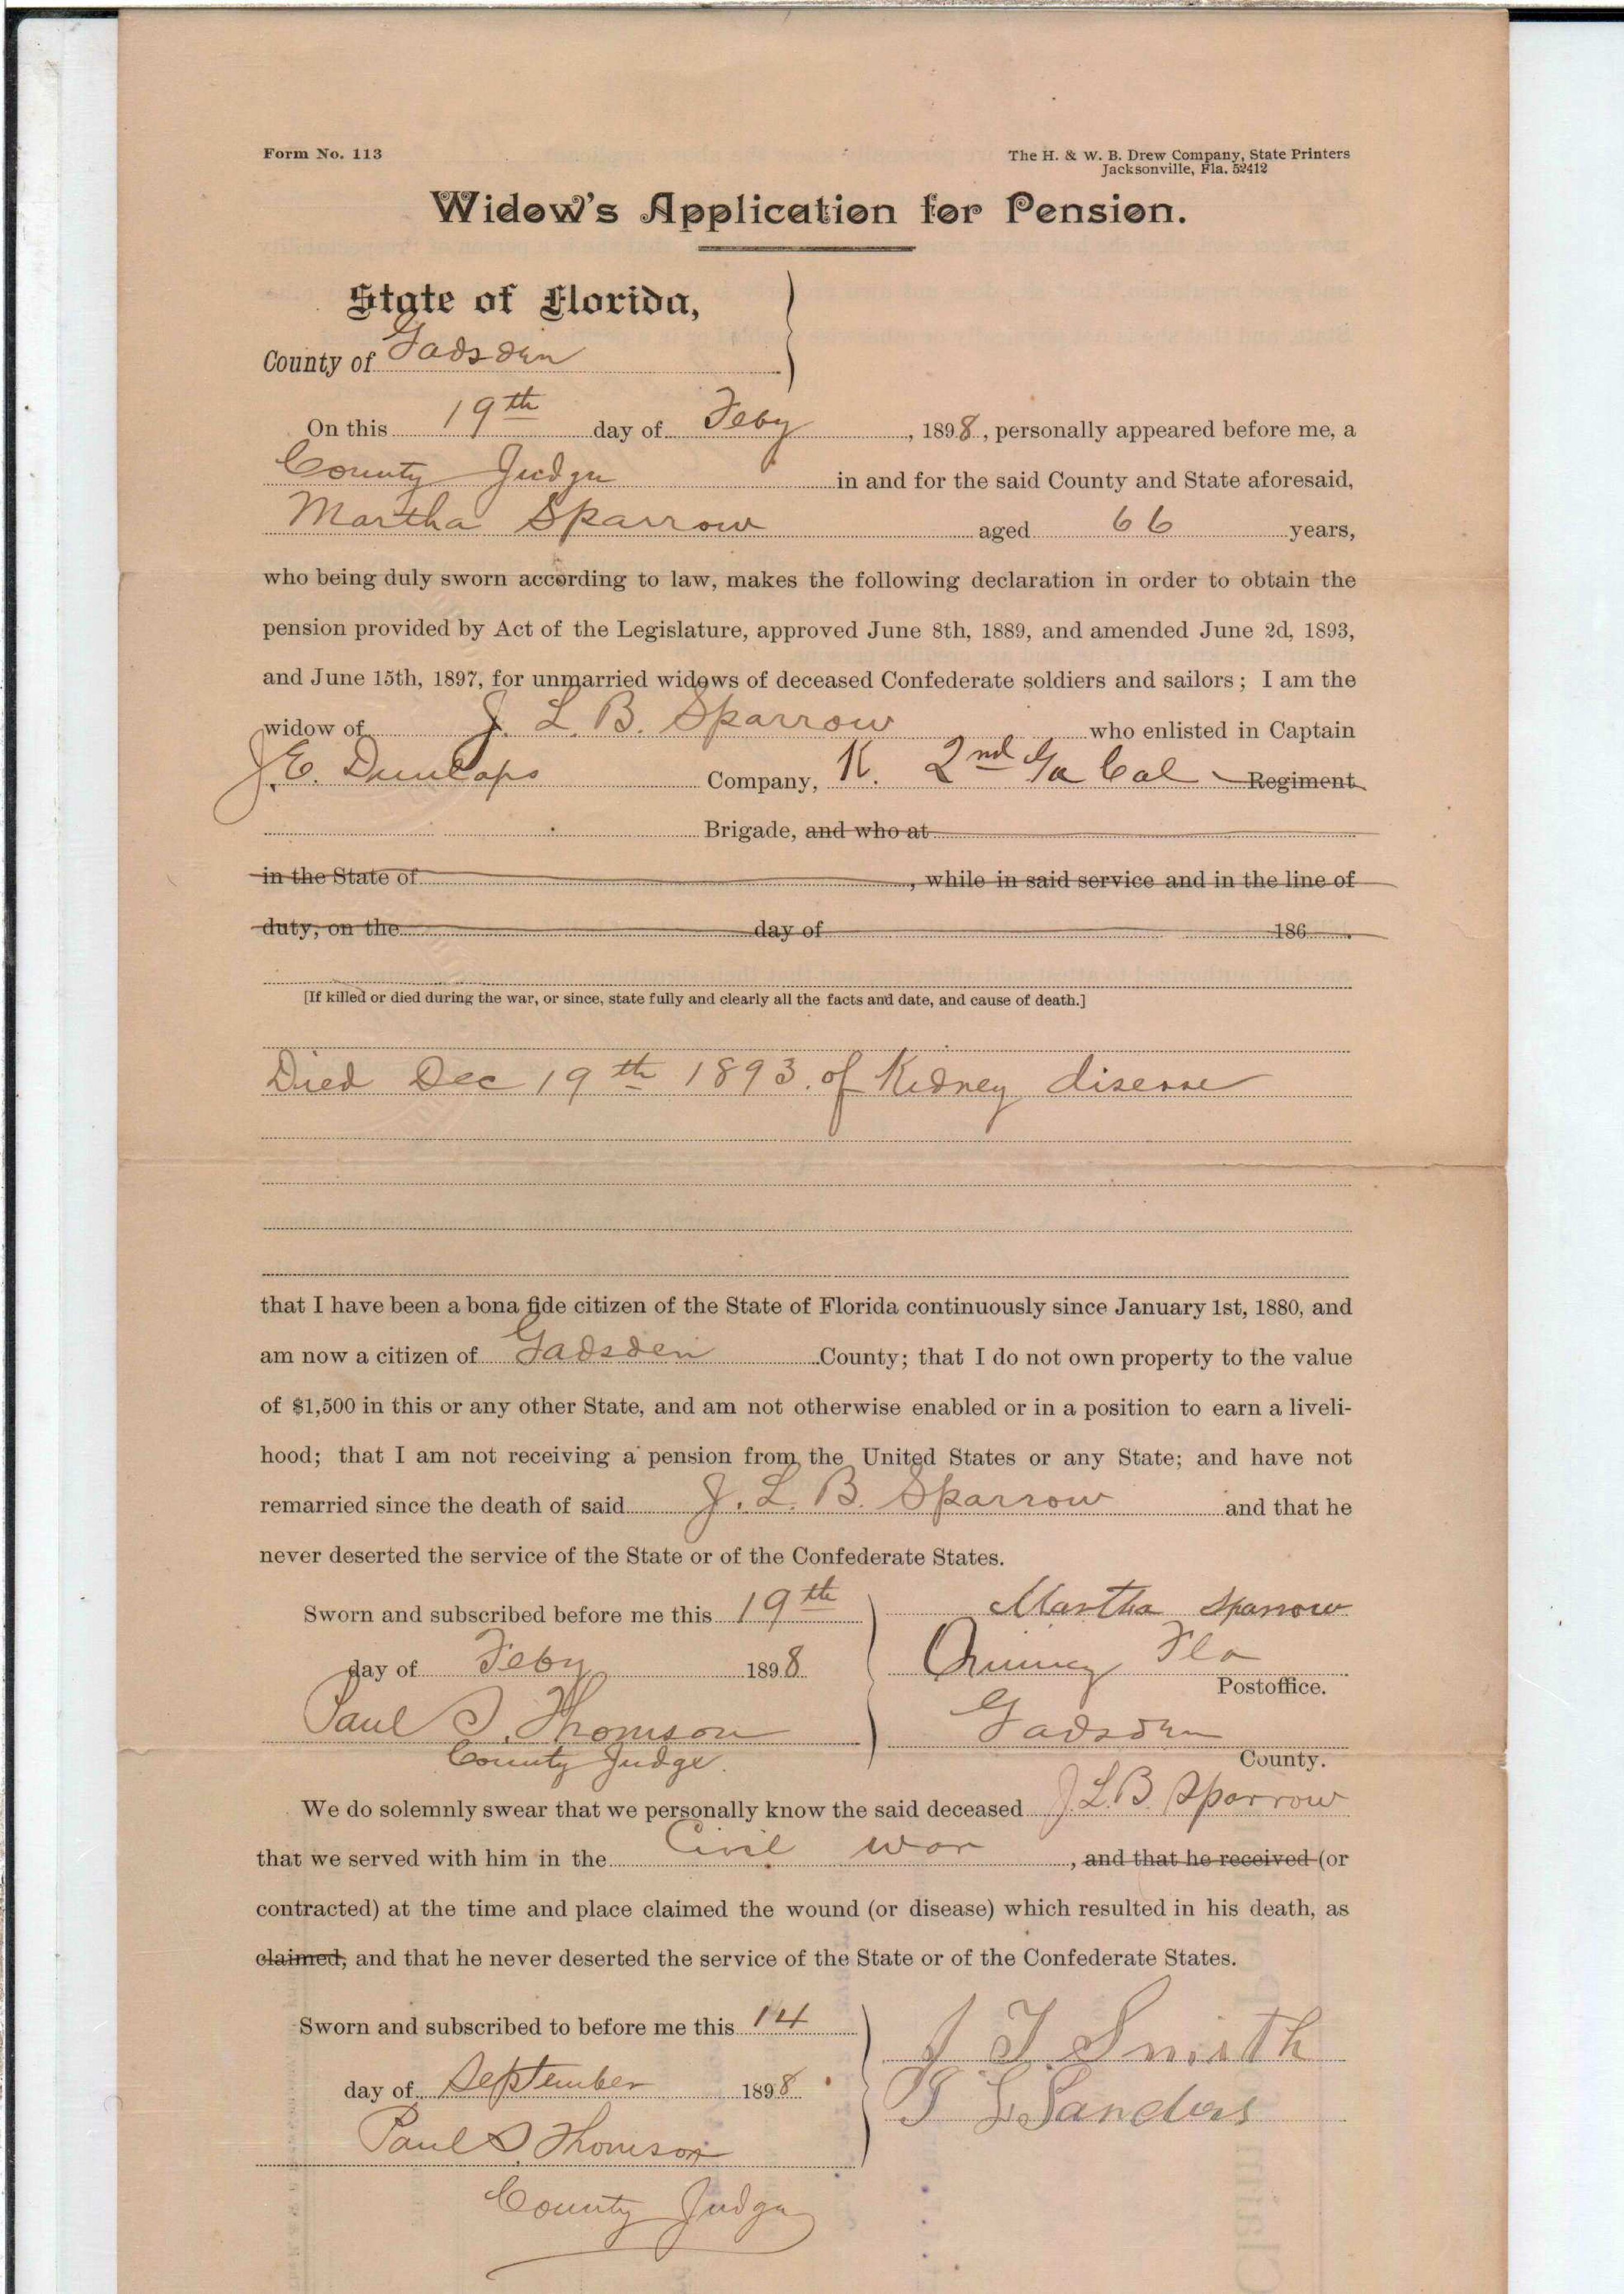 Form No. 113
The H. & W. B. Drew Company, State Printers
Jacksonville, Fla. 52412
Widow's Application for Pension.
State of Florida,
County of Gadsden
On this 19th day of Feby, 1898, personally appeared before me, a
County Judge in and for the said County and State aforesaid,
Martha Sparrow aged 66 years,
who being duly sworn according to law, makes the following declaration in order to obtain the
pension provided by Act of the Legislature, approved June 8th, 1889, and amended June 2d, 1893,
and June 15th, 1897, for unmarried widows of deceased Confederate soldiers and sailors; I am the
widow of J. L. B. Sparrow who enlisted in Captain
J. E. Dunlaps Company, K. 2nd Ga Cal Regiment
Brigade, and who at
in the State of , while in said service and in the line of
duty, on the day of 186
[If killed or died during the war, or since, state fully and clearly all the facts and date, and cause of death.]
Died Dec 19th 1893. of Kidney disease
that I have been a bona fide citizen of the State of Florida continuously since January 1st, 1880, and
am now a citizen of Gadsden County; that I do not own property to the value
of $1,500 in this or any other State, and am not otherwise enabled or in a position to earn a liveli-
hood; that I am not receiving a pension from the United States or any State; and have not
remarried since the death of said J. L. B. Sparrow and that he
never deserted the service of the State or of the Confederate States.
Sworn and subscribed before me this 19th Martha Sparrow
day of Feby 1898 Quincy Fla
Postoffice.
Paul Thomson Gadsden
County Judge. County.
We do solemnly swear that we personally know the said deceased J. L. B. Sparrow
that we served with him in the Civil war, and that he received (or
contracted) at the time and place claimed the wound (or disease) which resulted in his death, as
claimed, and that he never deserted the service of the State or of the Confederate States.
Sworn and subscribed to before me this 14 J T. Smith
day of September 1898 L Sanders
Paul Thomson
County Judge